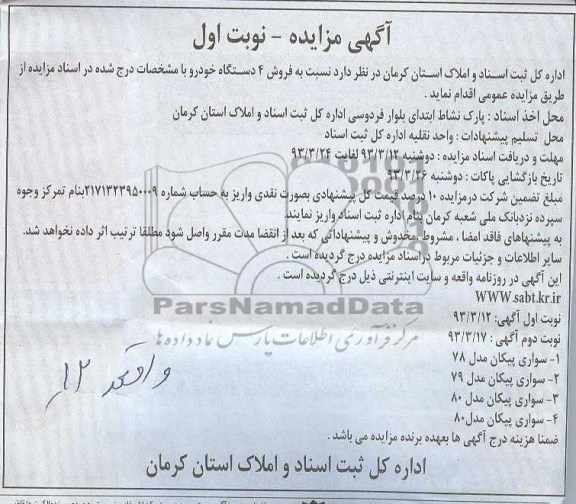 آگهی مزایده - نوبت اول
اداره کل ثبت اسناد و املاک استان کرمان در نظر دارد نسبت به فروش ۴ دستگاه خودرو با مشخصات درج شده در اسناد مزایده از
طریق مزایده عمومی اقدام نماید .
محل اخذ اسناد : پارک نشاط ابتدای بلوار فردوسی اداره کل ثبت اسناد و املاک استان کرمان
محل تسلیم پیشنهادات : واحد نقلیه اداره کل ثبت اسناد
مهلت و دریافت اسناد مزایده : دوشنبه ۹۳/۳/۱۲ لغایت ۹۳/۳/۲۴
تاریخ بازگشایی پاکات : دوشنبه ۹۳/۳/۲۶
مبلغ تضمین شرکت درمزایده ۱۰ درصد قیمت کل پیشنهادی بصورت نقدی واریز به حساب شماره ۲۱۷۱۳۲۳۹۵۰۰۰۹بنام تمرکز وجوه
سپرده نزدبانک ملی شعبه کرمان بنام اداره ثبت اسناد واریز نمایند.
به پیشنهاهای فاقد امضا ، مشروط ،مخدوش و پیشنهاداتی که بعد از انقضا مدت مقرر واصل شود مطلقا ترتیب اثر داده نخواهد شد.
سایر اطلاعات و جزئیات مربوط دراسناد مزایده درج گردیده است .
این آگهی در روزنامه واقعه و سایت اینترنتی ذیل درج گردیده است .
WWW.sabt.kr.ir
ParsNamadData
مرکز فرآوری اطلاعات پارس نماد داده ها
نوبت اول آگهی: ۹۳/۳/۱۲
نوبت دوم آگهی : ۹۳/۳/۱۷
۱- سواری پیکان مدل ۷۸
۲- سواری پیکان مدل ۷۹
۳- سواری پیکان مدل ۸۰
۴- سواری پیکان مدل۸۰
واقعه ۱۲
ضمنا هزینه درج آگهی ها بعهده برنده مزایده می باشد .
اداره کل ثبت اسناد و املاک استان کرمان